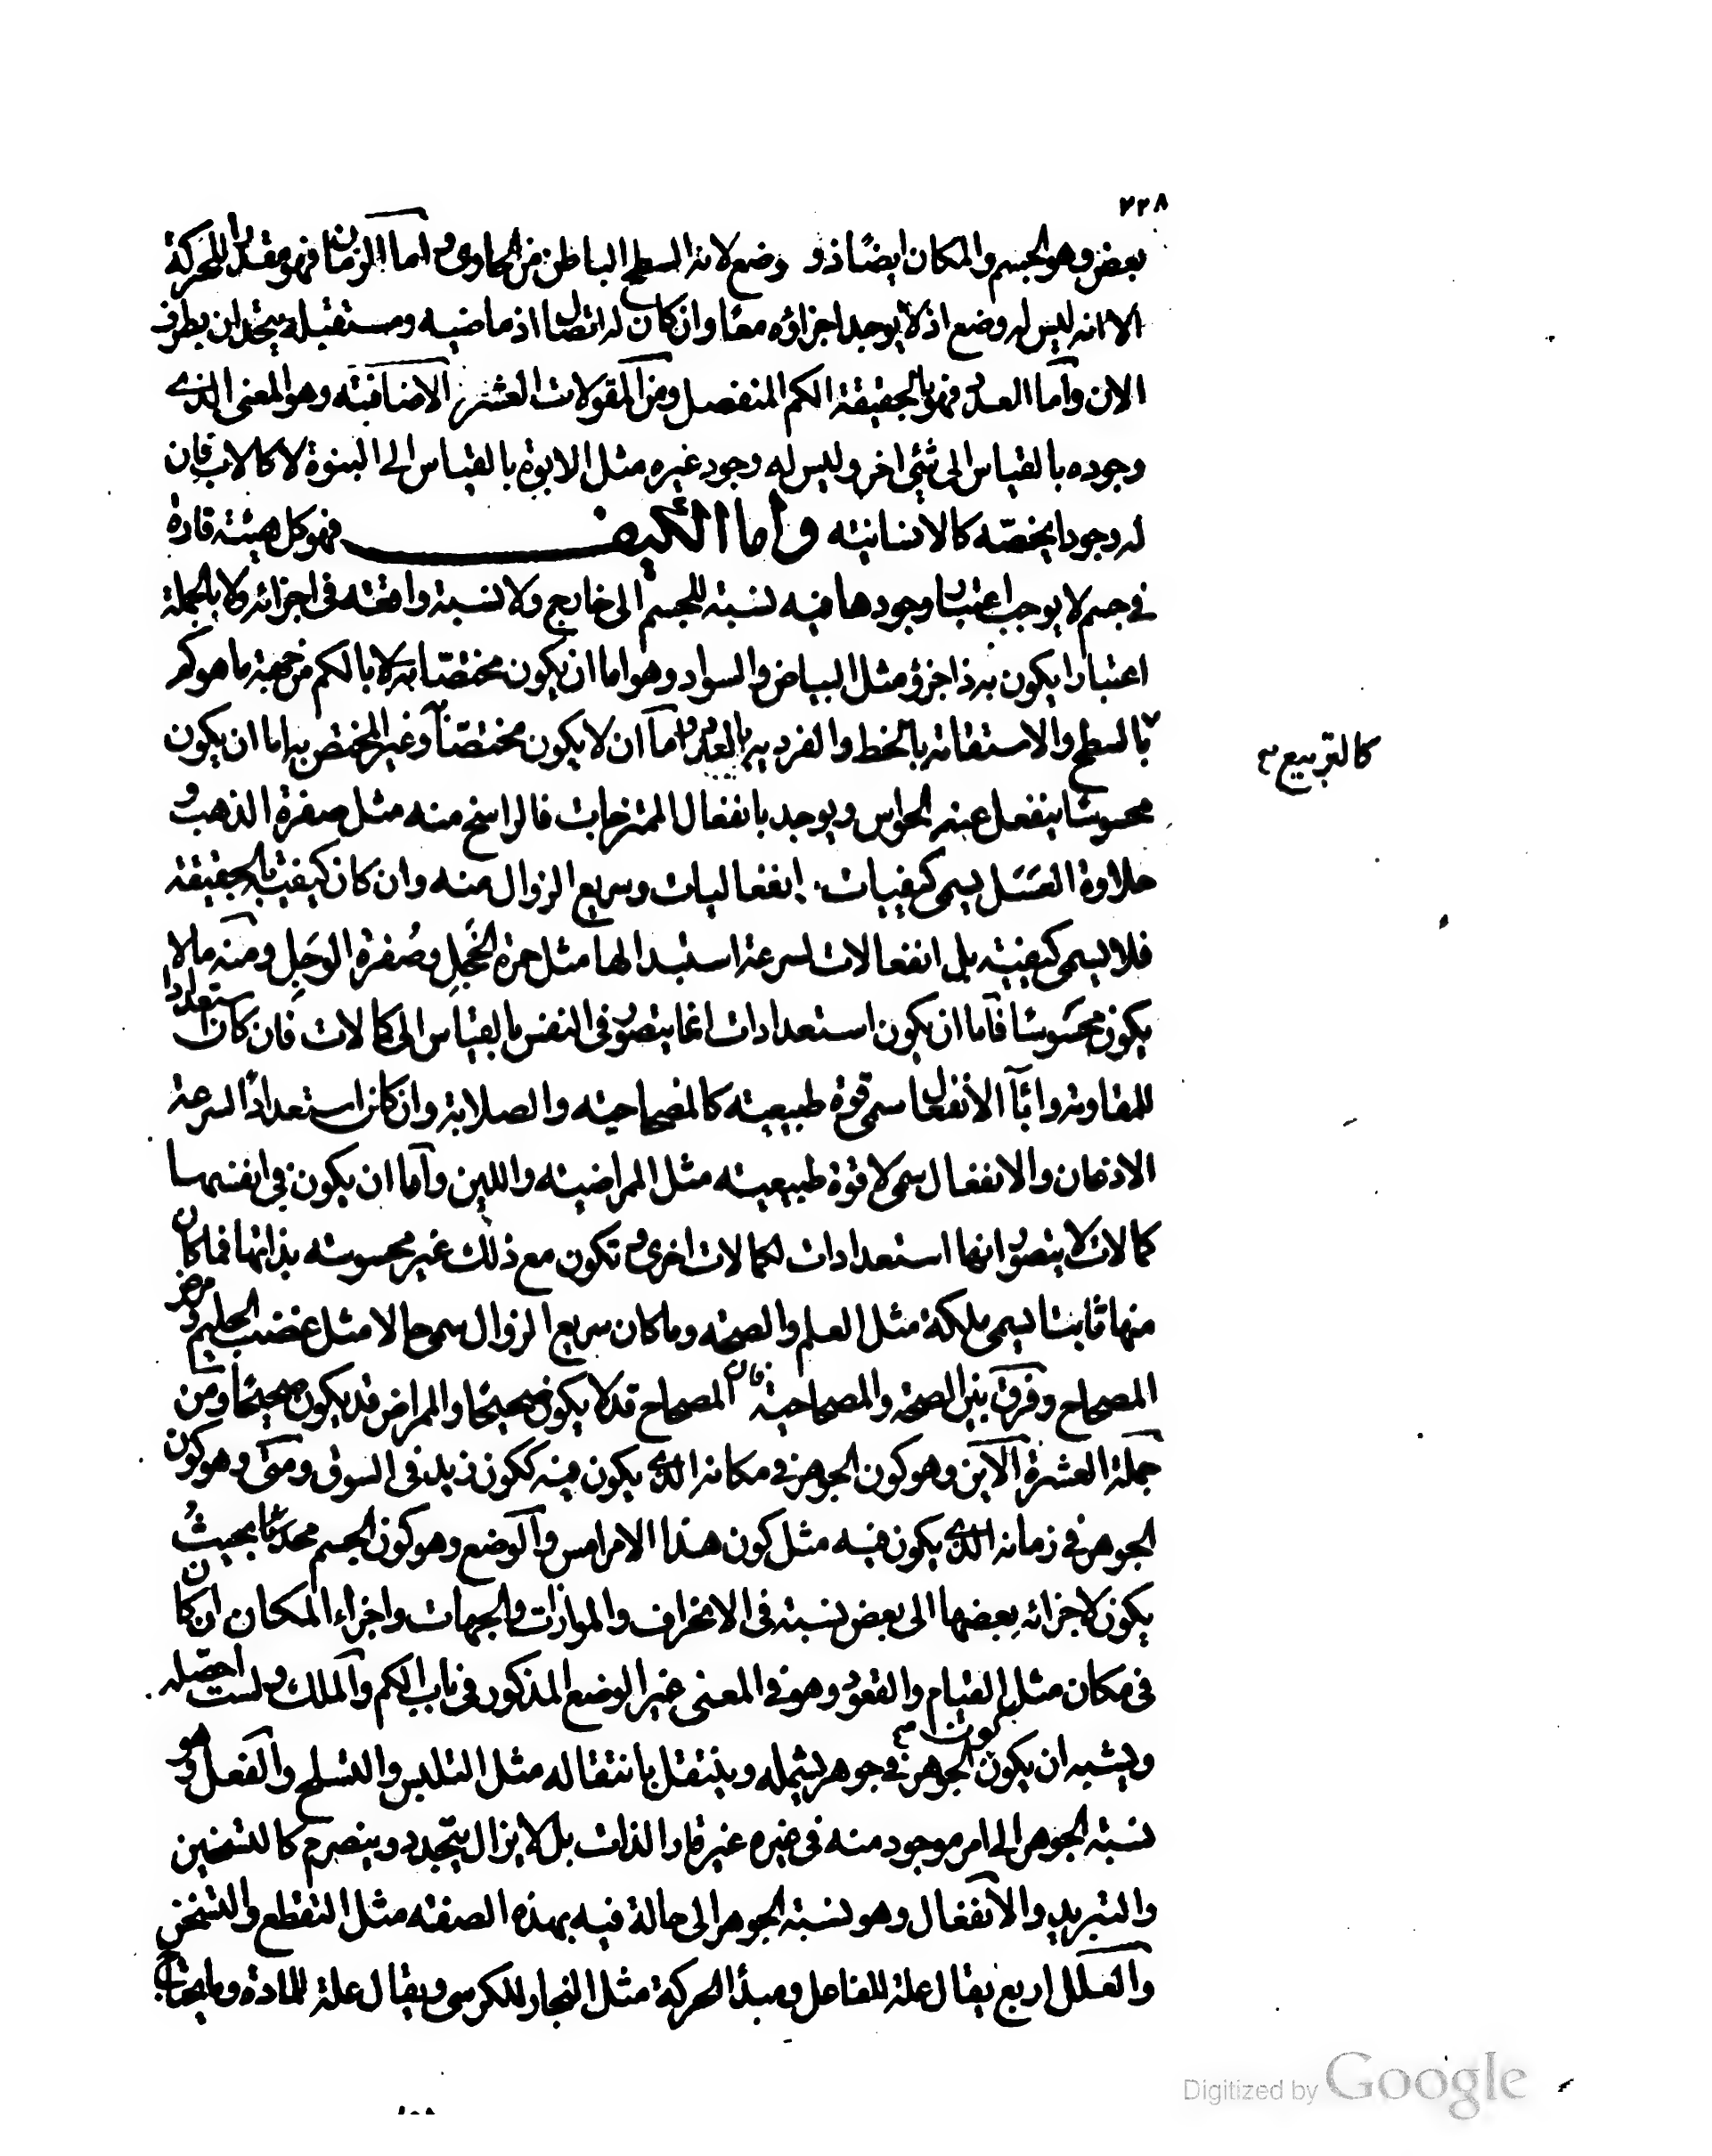 ٢٢٨
بعض وهو الجسم والمكان ايضًا ذو وضع لانه السطح الباطن من الحاوى واما الزمان فهو مقدار للحركة
الا انه ليس له وضع اذ لا يوجد اجزاؤه معًا وان كان له اتصال اذ ماضيه ومستقبله يتحدان بطرف
الان واما العدد فهو بالحقيقة الكم المنفصل ومن المقولات العشر الاضافية وهو المعنى الذى
وجوده بالقياس الى شئ اخر وليس له وجود غيره مثل الابوة بالقياس الى البنوة لا كالاب فان
له وجودا يخصّه كالانسانية واما الكيف فهو كل هيئة قارة
فى جسم لا يوجب اعتبار وجودها فيه نسبة للجسم الى خارج ولا نسبة واقعة فى اجزائه ولا بالجملة
اعتبارا يكون به ذا جزؤ مثل البياض والسواد وهو اما ان يكون مختصّا به لا بالكم من جهة ما هو كم
كالتربيع
بالسطح والاستقامة بالخط والفردية بالعدد واما ان لا يكون مختصّا وغير المختص به اما ان يكون
محسوسًا ينفعل عنه الحواس ويوجد بانفعال الممتزجات فالراسخ منه مثل صفرة الذهب و
حلاوة العَسَل يسمى كيفيات انفعاليات وسريع الزوال منه وان كان كيفية بالحقيقة
فلا يسمى كيفية بل انفعالات لسرعة استبدالها مثل حمرة الخَجِل وصُفرة الوَجِل ومنه ما لا
يكون محسوسًا فاما ان يكون استعدادات انما يتصوّر فى النفس بالقياس الى كمالات فان كان استعدادا
للمقاومة وابآء الانفعال سمى قوة طبيعية كالمصحاحية والصلابة وان كان استعدادًا لسرعة
الاذعان والانفعال سمى لا قوة طبيعية مثل الممراضية واللين واما ان يكون فى انفسها
كمالات لا يتصوّر انها استعدادات لكمالات اخرى وتكون مع ذلك غير محسوسة بذاتها فما كان
منها ثابتا يسمى ملكة مثل العلم والصحة وما كان سريع الزوال سمى حالا مثل غضب الحليم ومرض
المصحاح وفرق بين الصحة والمصحاحية فان المصحاح قد لا يكون صحيحًا والممراض قد يكون صحيحًا ومن
جملة العشرة الاين وهو كون الجوهر فى مكانه الذى يكون فيه ككون زيد فى السوق ومتى وهو كون
الجوهر فى زمانه الذى يكون فيه مثل كون هذا الامر امس والوضع وهو كون الجسم بحيثُ
يكون لاجزائه بعضها الى بعض نسبة فى الانحراف والموازات والجهات واجزاء المكان ان كان
فى مكان مثل القيام والقعود وهو فى المعنى غير الوضع المذكور فى باب الكم والملك ولست احصّله
ويشبه ان يكون كون الجوهر فى جوهر يشمله وينتقل بانتقاله مثل التلبس والتسلح والفعل وهو
نسبة الجوهر الى امر موجود منه فى غيره غير قار الذات بل لا يزال يتجدد وينصرم كالتسخين
والتبريد والانفعال وهو نسبة الجوهر الى حالة فيه بهذه الصفة مثل التقطع والتسخن
والعلل اربع يقال علة للفاعل ومبدأ الحركة مثل النجار للكرسى ويقال علة للمادة وما يحتاج
Digitized by Google